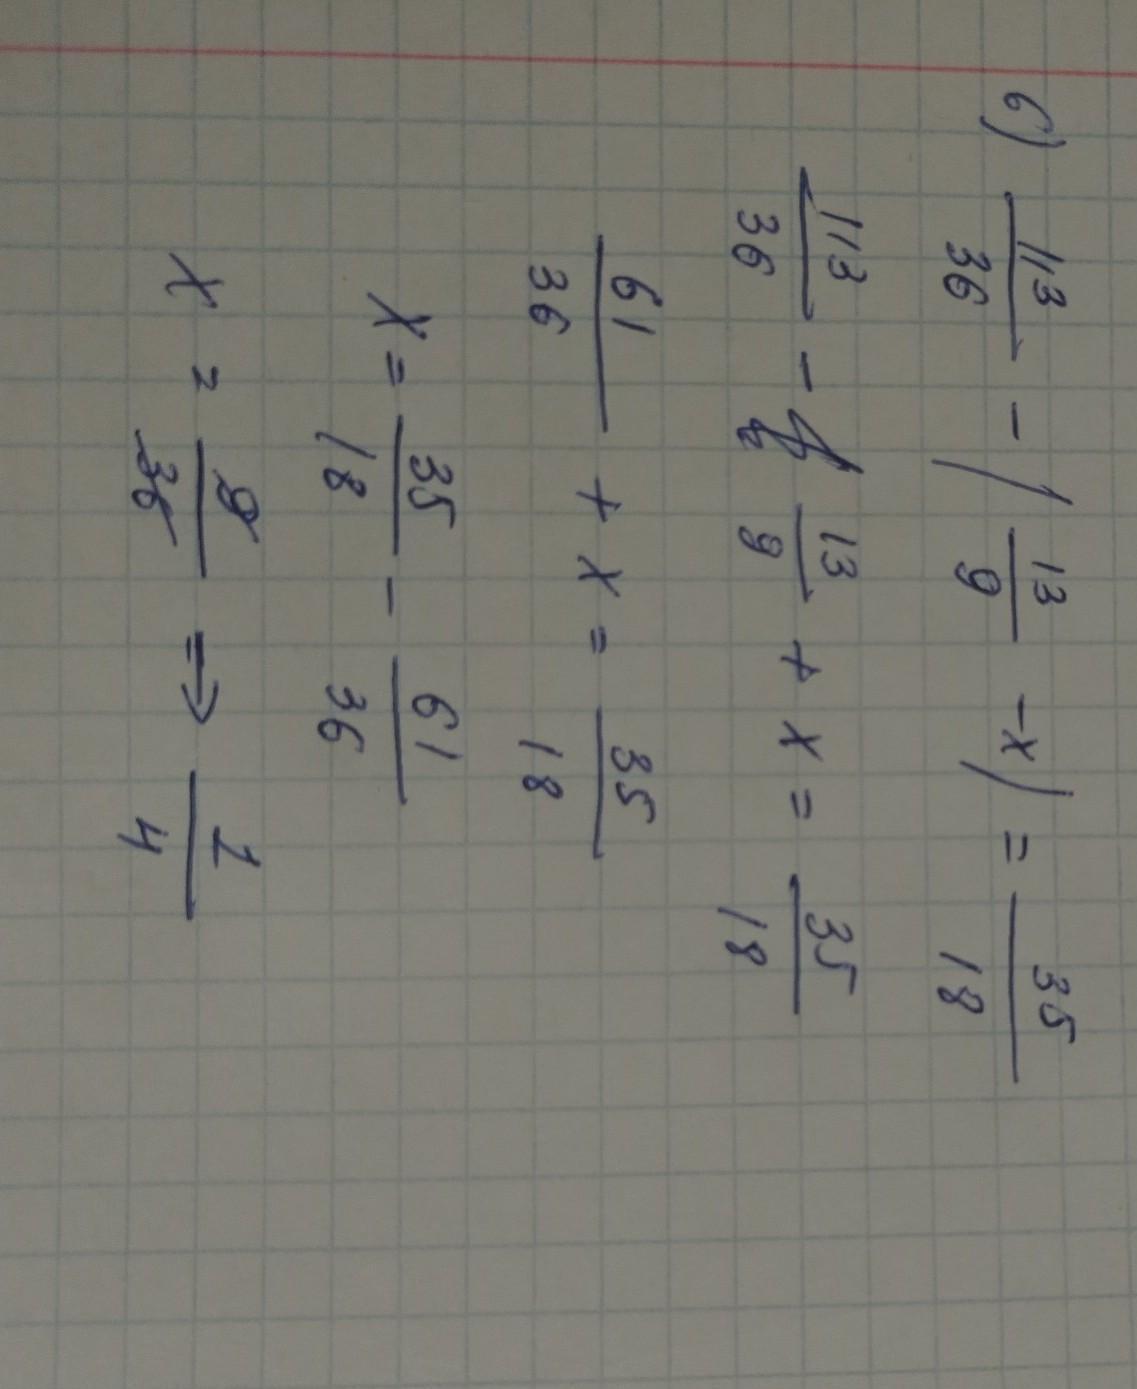 б) 113/36 - (13/9 - x) = 35/18
113/36 - 13/9 + x = 35/18
61/36 + x = 35/18
x = 35/18 - 61/36
x = 9/36 ⇒ 1/4